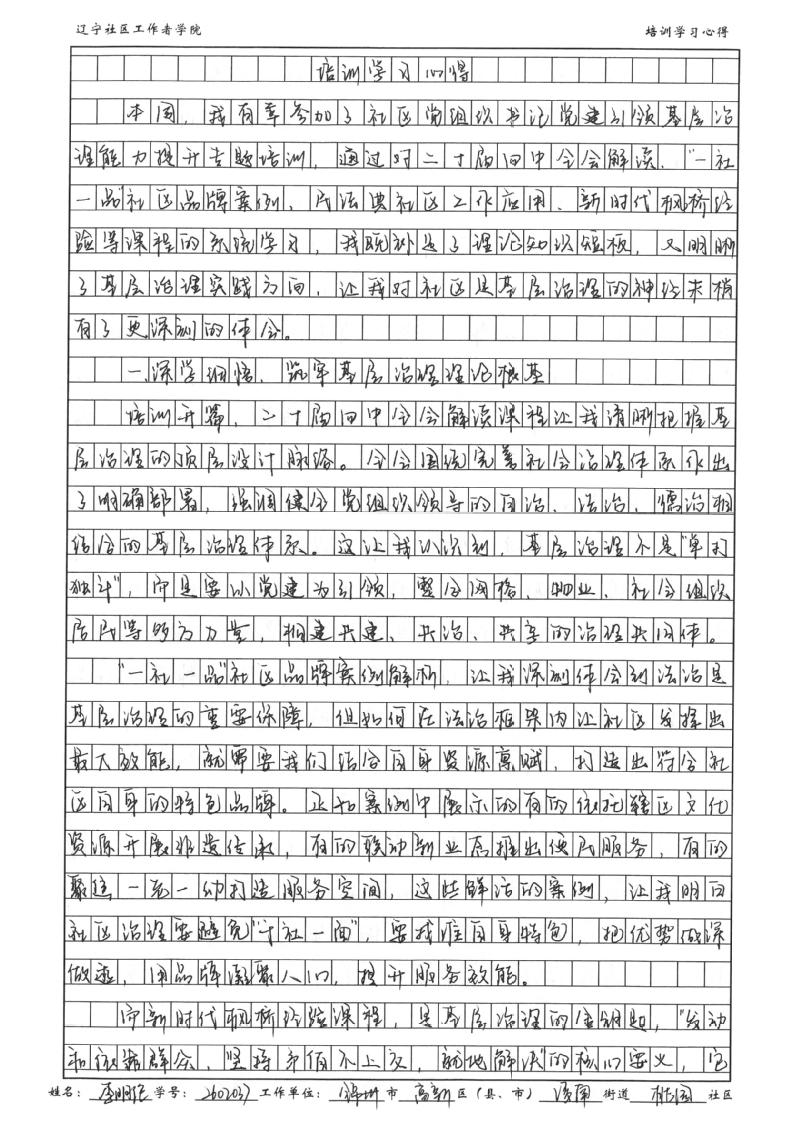 辽宁社区工作者学院 培训学习心得
培训学习心得
本周，我有幸参加了社区党组织书记党建引领基层治
理能力提升专题培训，通过对二十届四中全会解读、“一社
一品”社区品牌案例、民法典社区工作应用、新时代枫桥经
验等课程的系统学习，我既补足了理论知识短板，又明晰
了基层治理实践方向，让我对社区是基层治理的神经末梢
有了更深刻的体会。
一、深学细悟，筑牢基层治理理论根基
培训开篇，二十届四中全会解读课程让我清晰把握基
层治理的顶层设计脉络。全会围绕完善社会治理体系作出
了明确部署，强调健全党组织领导的自治、法治、德治相
结合的基层治理体系。这让我认识到，基层治理不是“单打
独斗”，而是要以党建为引领，整合网格、物业、社会组织
居民等多方力量，构建共建、共治、共享的治理共同体。
“一社一品”社区品牌案例解析，让我深刻体会到法治是
基层治理的重要保障，但如何在法治框架内让社区发挥出
最大效能，就需要我们结合自身资源禀赋，打造出符合社
区自身的特色品牌。正如案例中展示的有的依托辖区文化
资源开展非遗传承，有的联动新业态推出便民服务，有的
聚焦一老一幼打造服务空间，这些鲜活的案例，让我明白
社区治理要避免“千社一面”，要找准自身特色，把优势做深
做透，用品牌凝聚人心，提升服务效能。
而新时代枫桥经验课程，是基层治理的金钥匙，“发动
和依靠群众，坚持矛盾不上交，就地解决”的核心要义，它
姓名： 学号：260203 工作单位：锦州 市 高新 区（县、市） 街道 社区